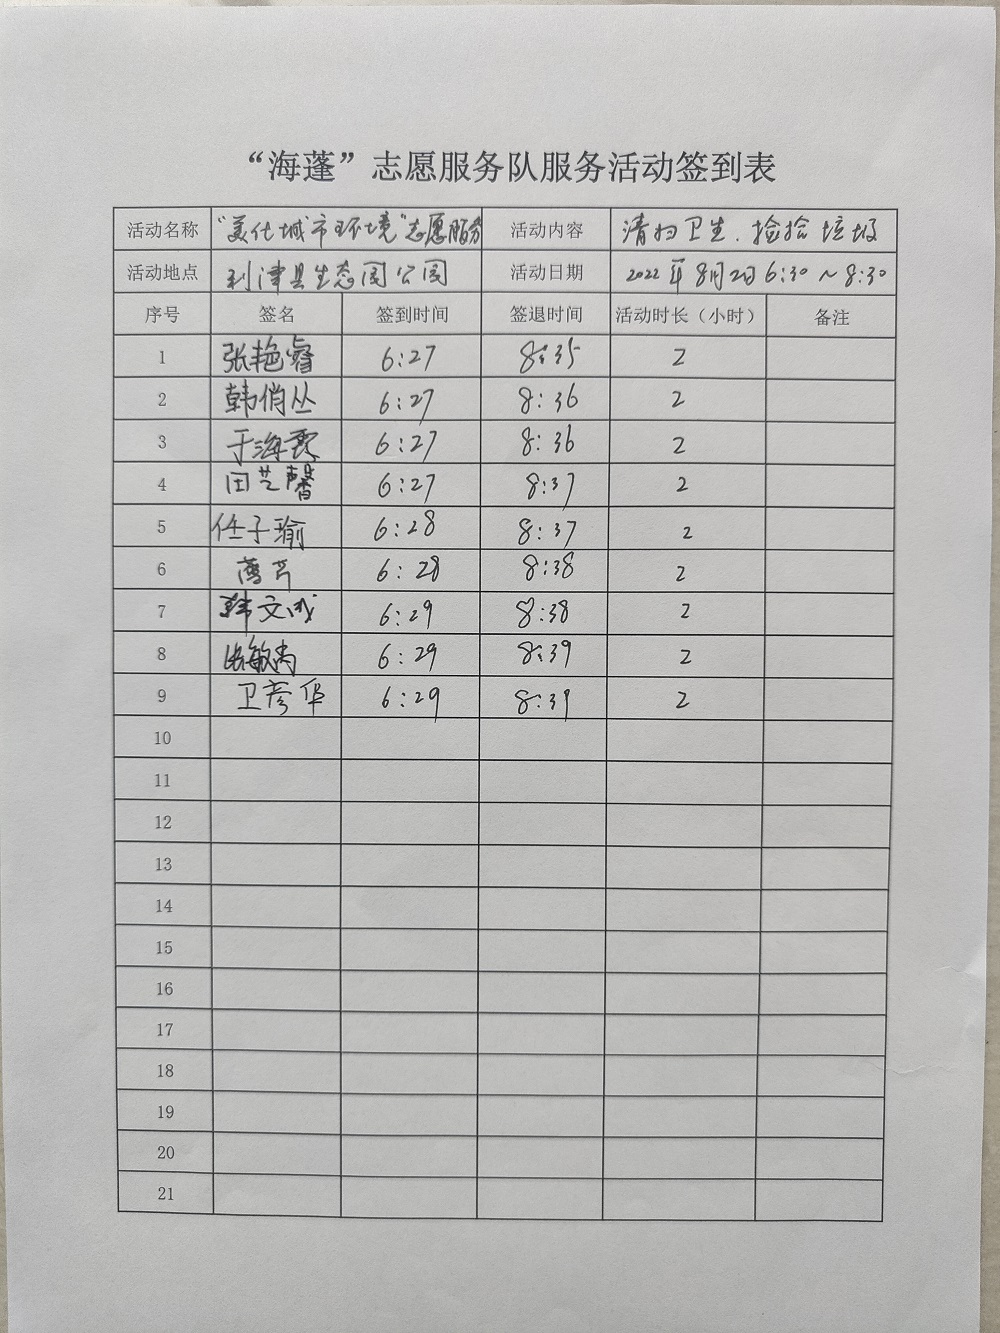 “海蓬”志愿服务队服务活动签到表
活动名称 “美化城市环境”志愿服务 活动内容 清扫卫生、捡拾垃圾
活动地点 利津县生态园公园 活动日期 2022年8月2日6:30~8:30
序号 签名 签到时间 签退时间 活动时长（小时） 备注
1 张艳睿 6:27 8:35 2
2 韩俏丛 6:27 8:36 2
3 于海霞 6:27 8:36 2
4 田芝馨 6:27 8:37 2
5 任子瑜 6:28 8:37 2
6 6:28 8:38 2
7 韩文成 6:29 8:38 2
8 6:29 8:39 2
9 卫彦华 6:29 8:39 2
10
11
12
13
14
15
16
17
18
19
20
21